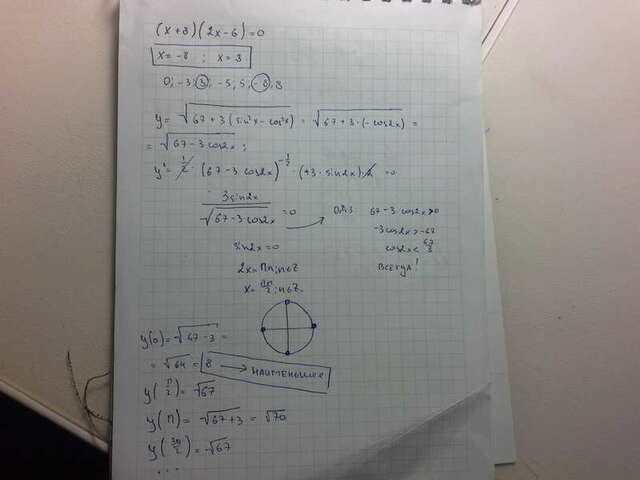 (x+8)(2x-6)=0
x=-8 ; x=3
0; -3; 3; -5; 5; -8; 8
y = √(67+3(sin²x-cos²x)) = √(67+3·(-cos2x)) =
= √(67-3cos2x);
y' = 1/2·(67-3cos2x)^(-1/2)·(+3·sin2x)·2 =0
3sin2x / √(67-3cos2x) =0
ОДЗ 67-3cos2x>0
-3cos2x>-67
cos2x< 67/3
всегда!
sin2x=0
2x=Пn; n∈Z
x= Пn/2; n∈Z.
y(0)=√(67-3) =
= √64 = 8 → наименьшее
y(П/2) = √67
y(П) = √(67+3) = √70
y(3П/2) = √67
...